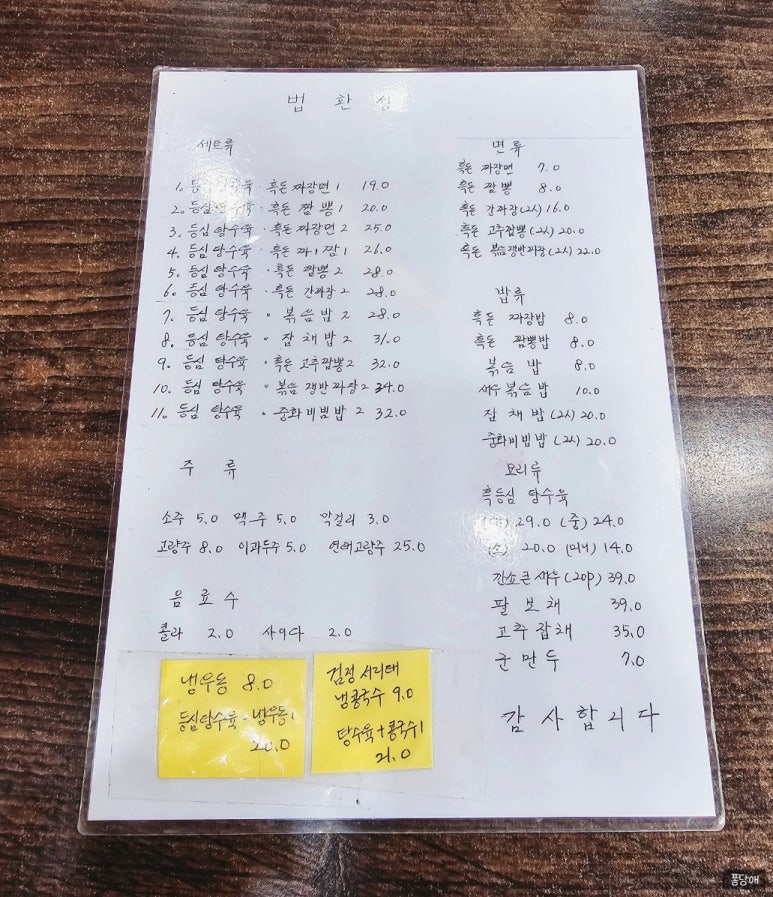 법 환 성
세트류
1. 등심 탕수육 · 흑돈 짜장면 1 19.0
2. 등심 탕수육 · 흑돈 짬 뽕 1 20.0
3. 등심 탕수육 · 흑돈 짜장면 2 25.0
4. 등심 탕수육 · 흑돈 짜1 짬1 26.0
5. 등심 탕수육 · 흑돈 짬뽕 2 28.0
6. 등심 탕수육 · 흑돈 간짜장 2 28.0
7. 등심 탕수육 · 볶음밥 2 28.0
8. 등심 탕수육 · 잡채밥 2 31.0
9. 등심 탕수육 · 흑돈 고추짬뽕2 32.0
10. 등심 탕수육 · 볶음 쟁반짜장2 34.0
11. 등심 탕수육 · 중화비빔밥 2 32.0
주 류
소주 5.0 맥주 5.0 막걸리 3.0
고량주 8.0 이과두주 5.0 연태고량주 25.0
음 료 수
콜라 2.0 사이다 2.0
냉우동 8.0
등심탕수육 · 냉우동1
20.0
검정 서리태
냉콩국수 9.0
탕수육+콩국수1
21.0
면 류
흑돈 짜장면 7.0
흑돈 짬뽕 8.0
흑돈 간짜장(2人) 16.0
흑돈 고추짬뽕(2人) 20.0
흑돈 볶음쟁반짜장(2人) 22.0
밥류
흑돈 짜장밥 8.0
흑돈 짬뽕밥 8.0
볶음 밥 8.0
새우 볶음밥 10.0
잡채밥(2人) 20.0
중화비빔밥(2人) 20.0
요리류
흑등심 탕수육
(대) 29.0 (중) 24.0
(소) 20.0 (미니) 14.0
깐소큰새우(20p) 39.0
팔보채 39.0
고추잡채 35.0
군만두 7.0
감사합니다
퐁당애